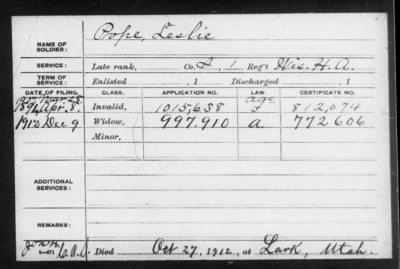 Pope, Leslie
NAME OF SOLDIER:
SERVICE: Late rank, Co. I, 1 Reg't Wis. H. A.
TERM OF SERVICE: Enlisted , 1 Discharged , 1
DATE OF FILING. CLASS. APPLICATION NO. LAW. CERTIFICATE NO.
age
1891 Apr. 8. Invalid, 1015,638 812,074
1912 Dec 9 Widow, 997.910 a. 772606
Minor,
ADDITIONAL SERVICES:
REMARKS:
Died Oct 27, 1912, at Lark, Utah.